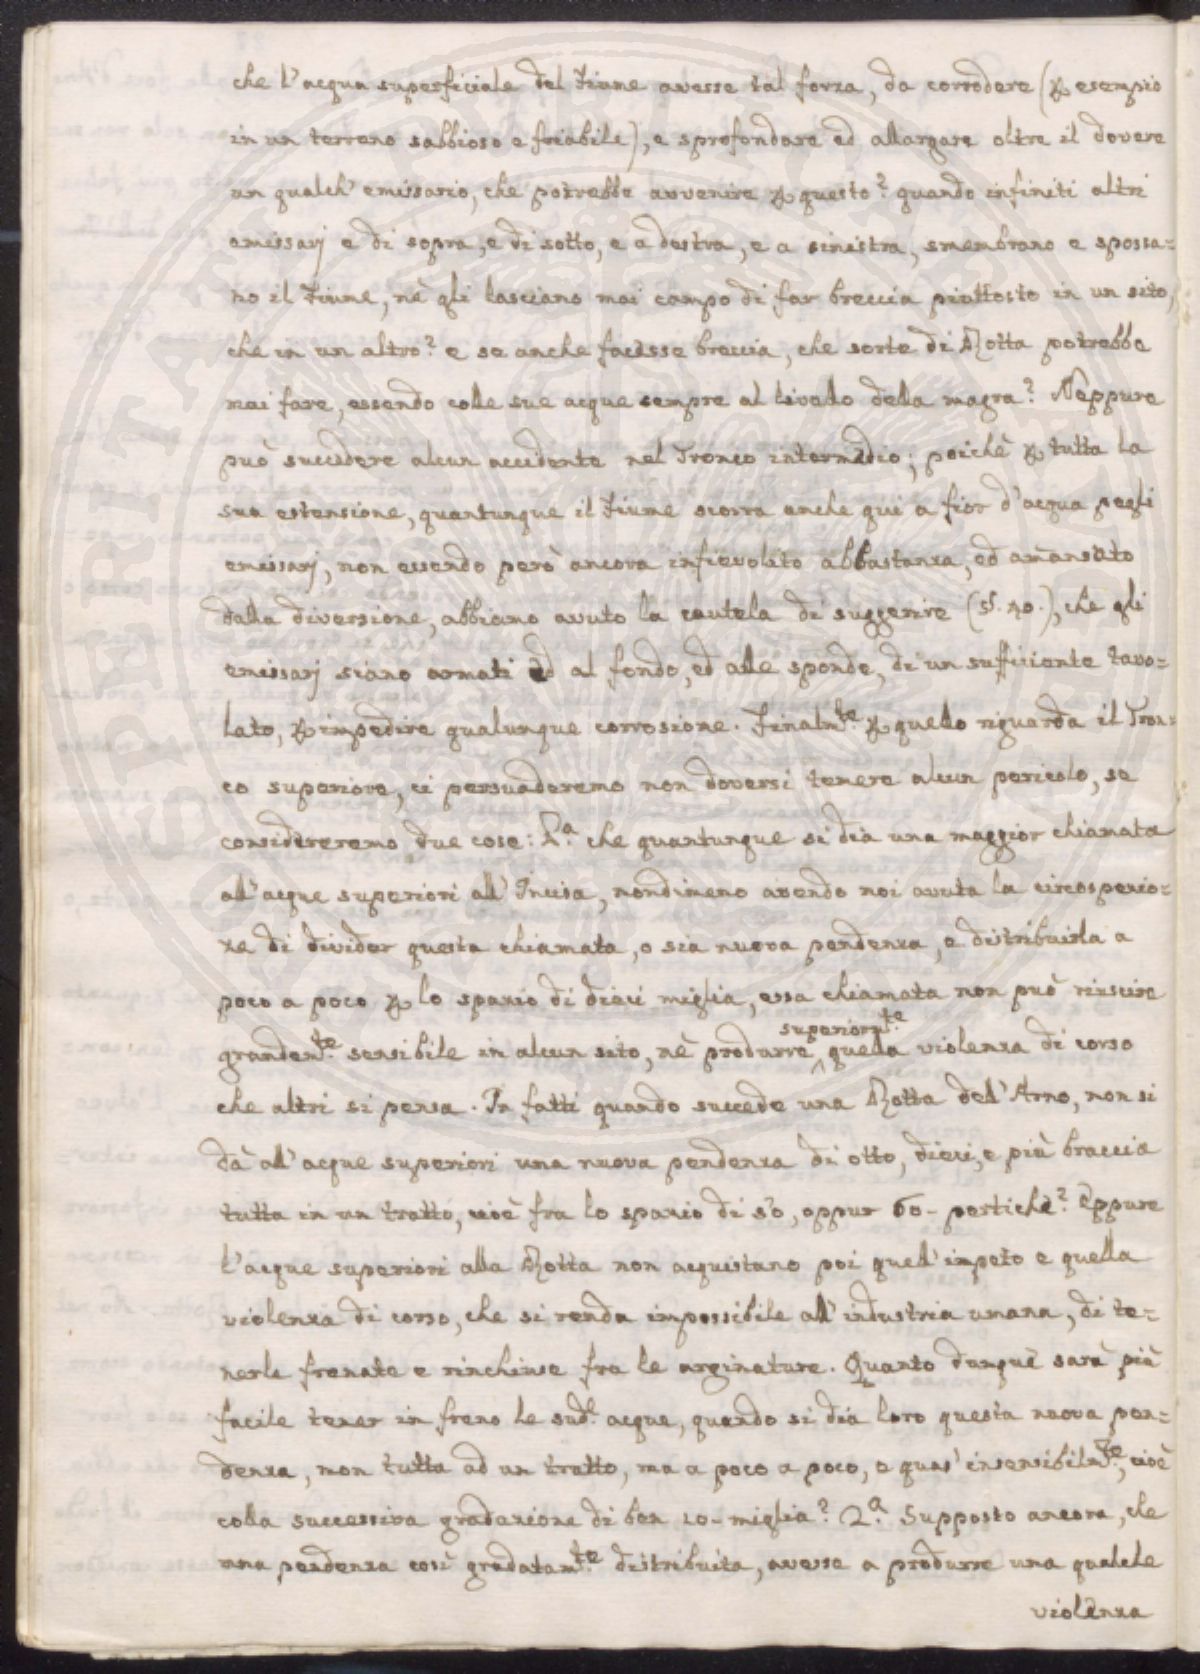 che l'acqua superficiale del Fiume avesse tal forza, da corrodere (p esempio
in un terreno sabbioso e friabile), e sprofondare ed allargare oltre il dovere
un qualch' emissario, che potrebbe avvenire p questo? quando infiniti altri
emissarj e di sopra, e di sotto, e a destra, e a sinistra, smembrano e spossa=
no il Fiume, nè gli lasciano mai campo di far breccia piuttosto in un sito,
che in un altro? e se anche facesse breccia, che sorte di Rotta potrebbe
mai fare, essendo colle sue acque sempre al livello della magra? Neppure
può succedere alcun accidente nel Tronco intermedio; poichè p tutta la
sua estensione, quantunque il Fiume scorra anche qui a fior d'acqua pegli
emissarj, non essendo però ancora infievolito abbastanza, ed amansato
dalla diversione, abbiamo avuto la cautela di suggerire (§. 40.), che gli
emissarj siano armati ed al fondo, ed alle sponde, di un sufficiente tavo=
lato, p impedire qualunque corrosione. Finalmte. p quello riguarda il Tron=
co superiore, ci persuaderemo non doversi temere alcun pericolo, se
considereremo due cose: 1.a che quantunque si dia una maggior chiamata
all'acque superiori all'Incisa, nondimeno avendo noi avuta la circospezio=
ne di divider questa chiamata, o sia nuova pendenza, e distribuirla a
poco a poco p lo spazio di dieci miglia, essa chiamata non può riuscire
superiormte.
grandemte. sensibile in alcun sito, nè produrre quella violenza di corso
che altri si pensa. In fatti quando succede una Rotta dell'Arno, non si
dà all'acque superiori una nuova pendenza di otto, dieci, e più braccia
tutta in un tratto, cioè fra lo spazio di 50, oppur 60 - pertiche? Eppure
l'acque superiori alla Rotta non acquistano poi quell'impeto e quella
violenza di corso, che si renda impossibile all'industria umana, di te=
nerle frenate e rinchiuse fra le arginature. Quanto dunque sarà più
facile tener in freno le sude. acque, quando si dia loro questa nuova pen=
denza, non tutta ad un tratto, ma a poco a poco, e quas' insensibilmte., cioè
colla successiva gradazione di ben 10 - miglia? 2.a Supposto ancora, che
una pendenza così gradatamte. distribuita, avesse a produrre una qualche
violenza